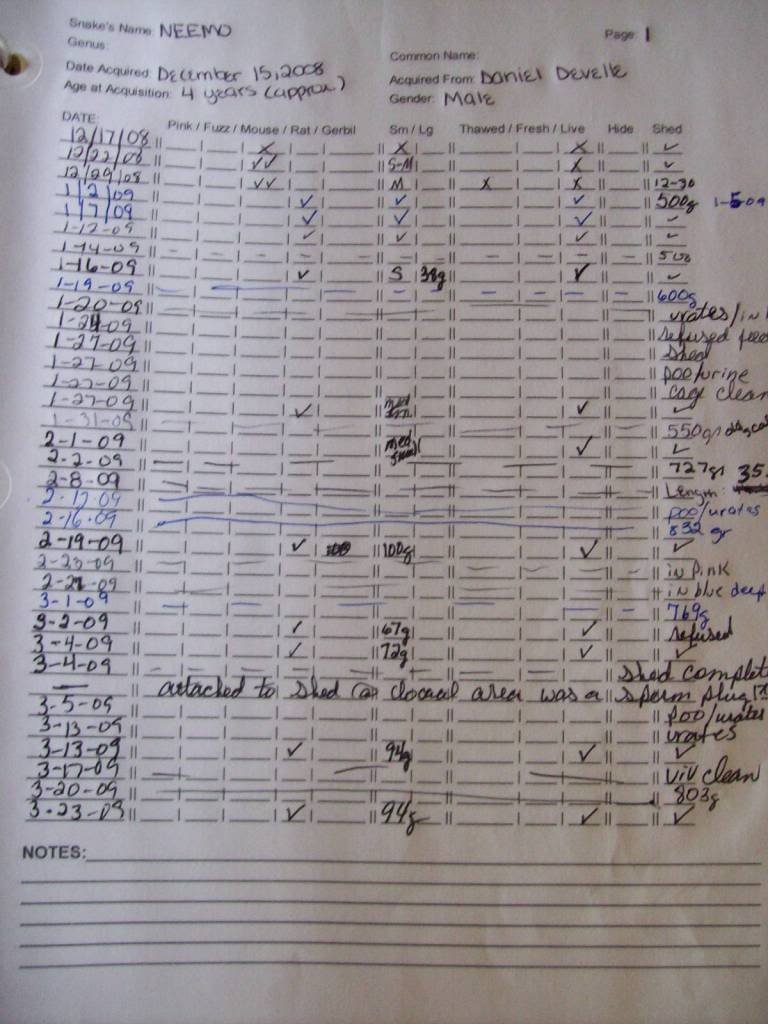 Snake's Name: NEEMO Page: 1
Genus:
Common Name:
Date Acquired: December 15, 2008 Acquired From: Daniel Develle
Age at Acquisition: 4 years (approx) Gender: Male
DATE: Pink / Fuzz / Mouse / Rat / Gerbil Sm / Lg Thawed / Fresh / Live Hide Shed
12/17/08 X X X ✓
12/22/08 ✓✓ S-M X ✓
12/29/08 ✓✓ M X X 12-30
1/2/09 ✓ ✓ ✓ 500g 1-5-09
1/7/09 ✓ ✓ ✓ ✓
1-12-09 ✓ ✓ ✓ ✓
1-14-09
1-16-09 ✓ S 38g ✓ ✓
1-19-09 600g
1-20-09 urates/in
1-24-09 refused
1-27-09 Shed
1-27-09 poo/urine
1-27-09 cage clean
1-27-09 ✓ med sm ✓ ✓
1-31-09 550gr
2-1-09 med small ✓ ✓
2-2-09 727gr 35.
2-8-09 Length:
2-12-09 poo/urates
2-16-09 832 gr
2-19-09 ✓ 100g ✓ ✓
2-23-09 in pink
2-27-09 in blue deep
3-1-09 769g
3-2-09 ✓ 67g ✓ refused
3-4-09 ✓ 72g ✓ ✓
3-4-09 Shed complete
attached to shed @ cloacal area was a sperm plug
3-5-09 poo/urates
3-13-09 urates
3-13-09 ✓ 94g ✓ ✓
3-17-09 viv clean
3-20-09 803g
3-23-09 ✓ 94g ✓ ✓
NOTES: